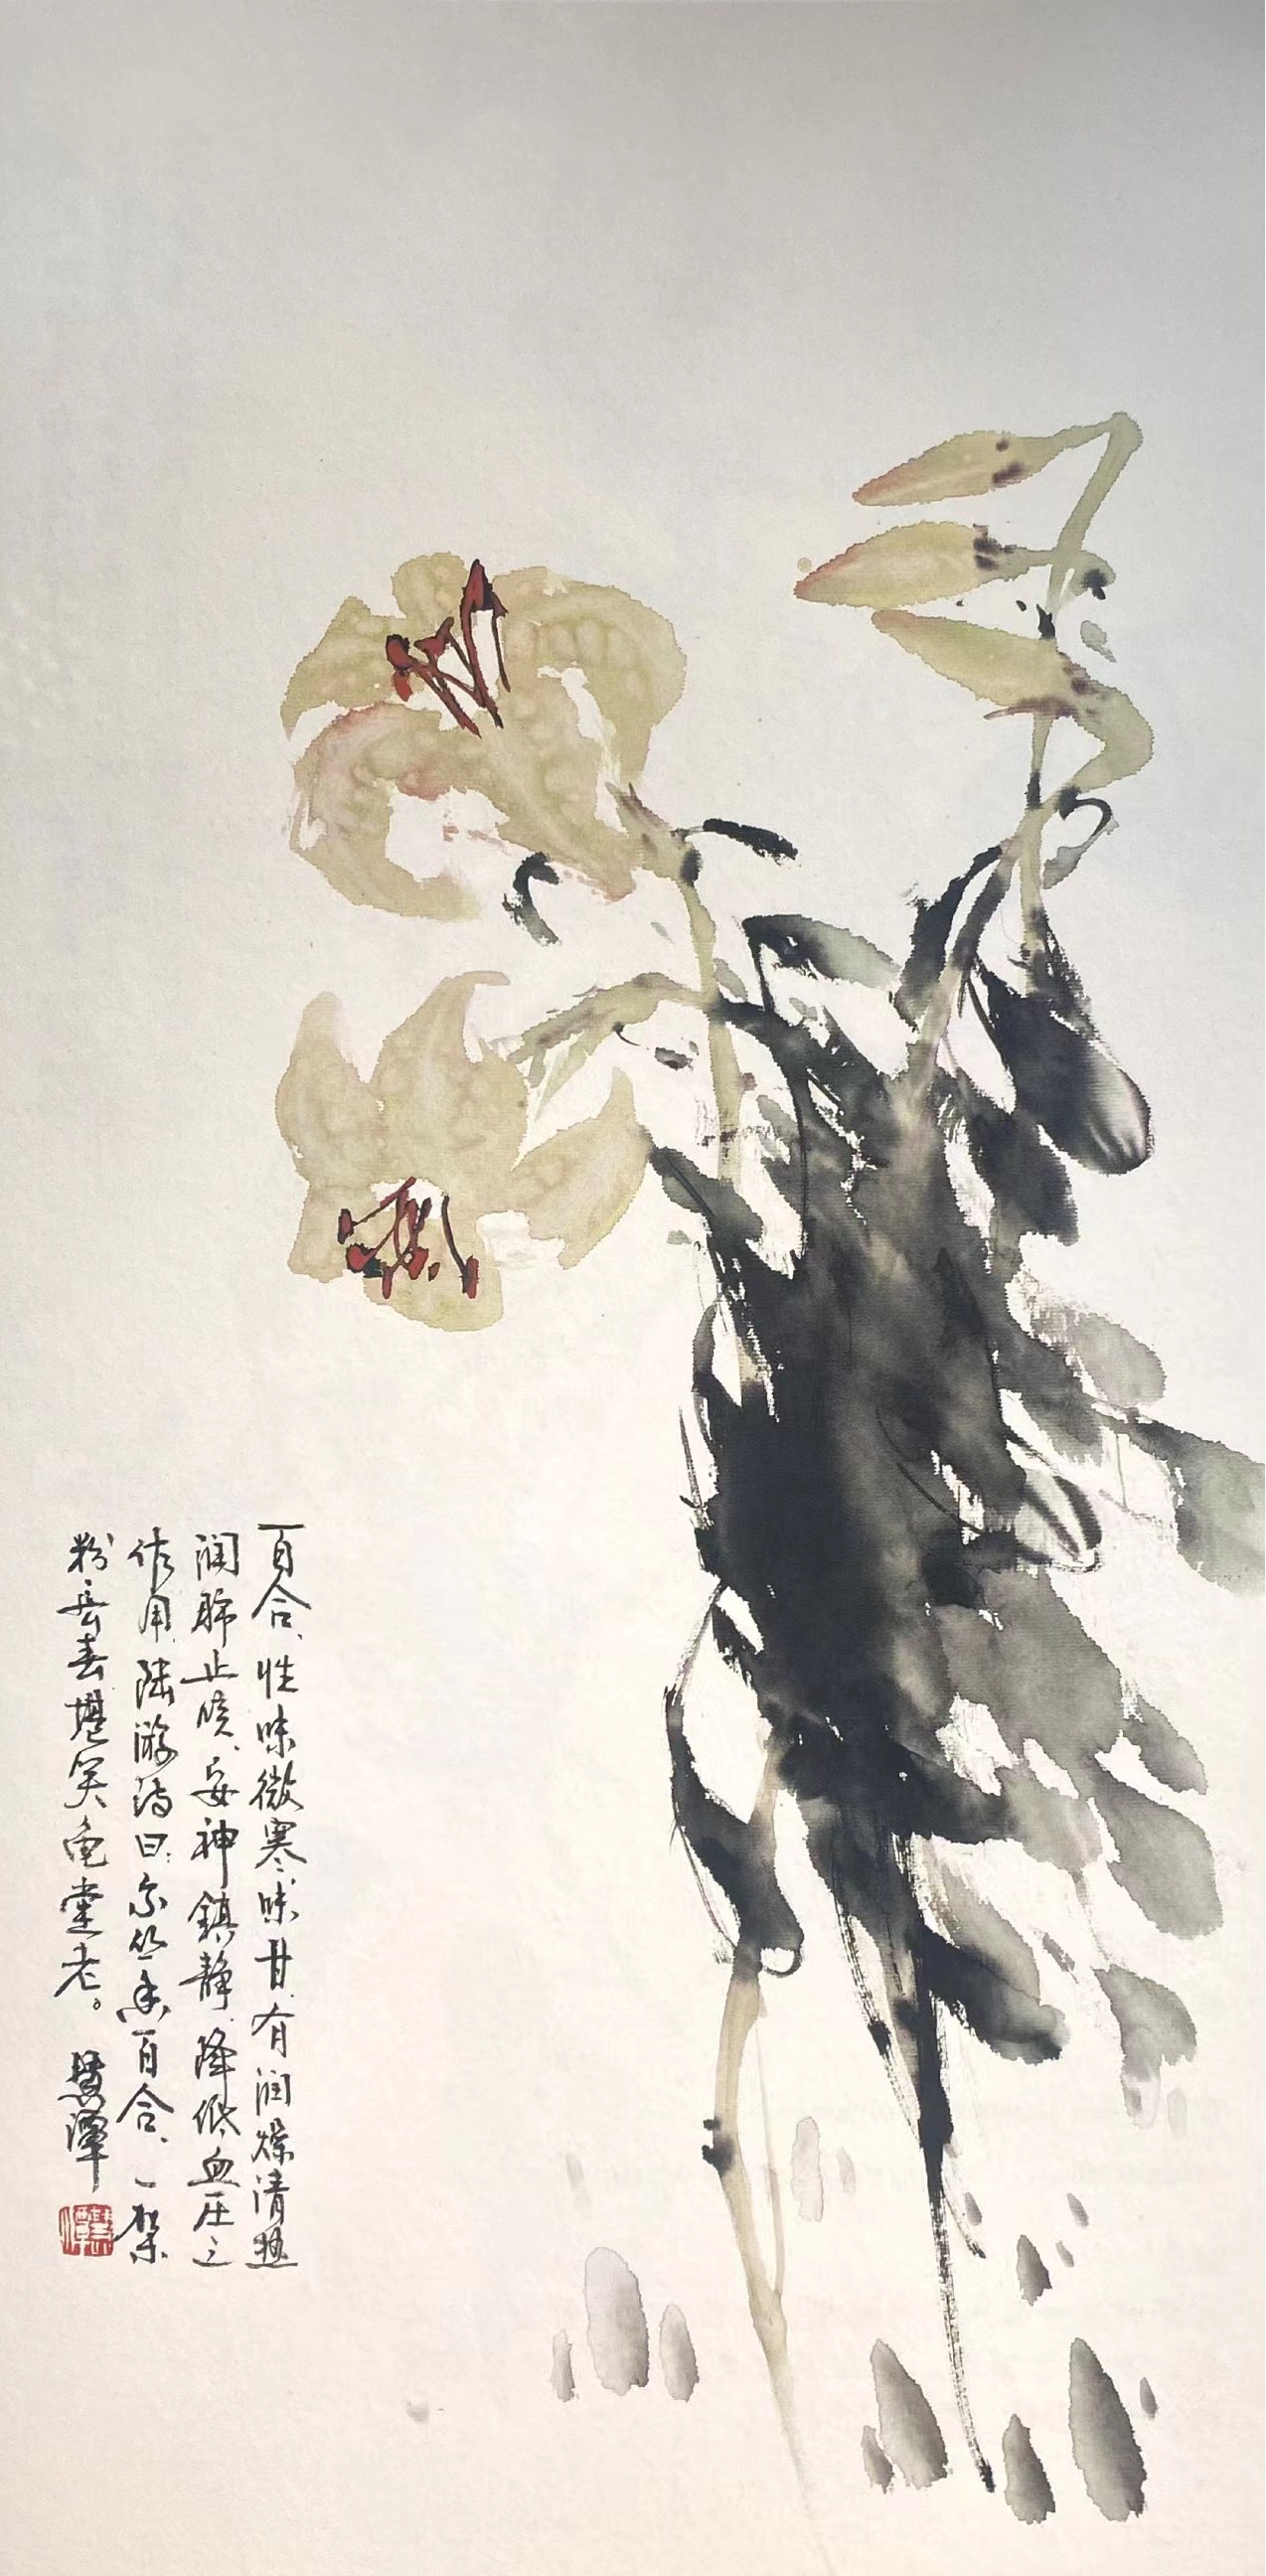 百合、性味微寒、味甘、有润燥清热
润肺止咳、安神鎮静、降低血压之
作用、陆游诗曰:尔丛香百合、一架
粉长春堪笑龟堂老。 慧潭
慧潭